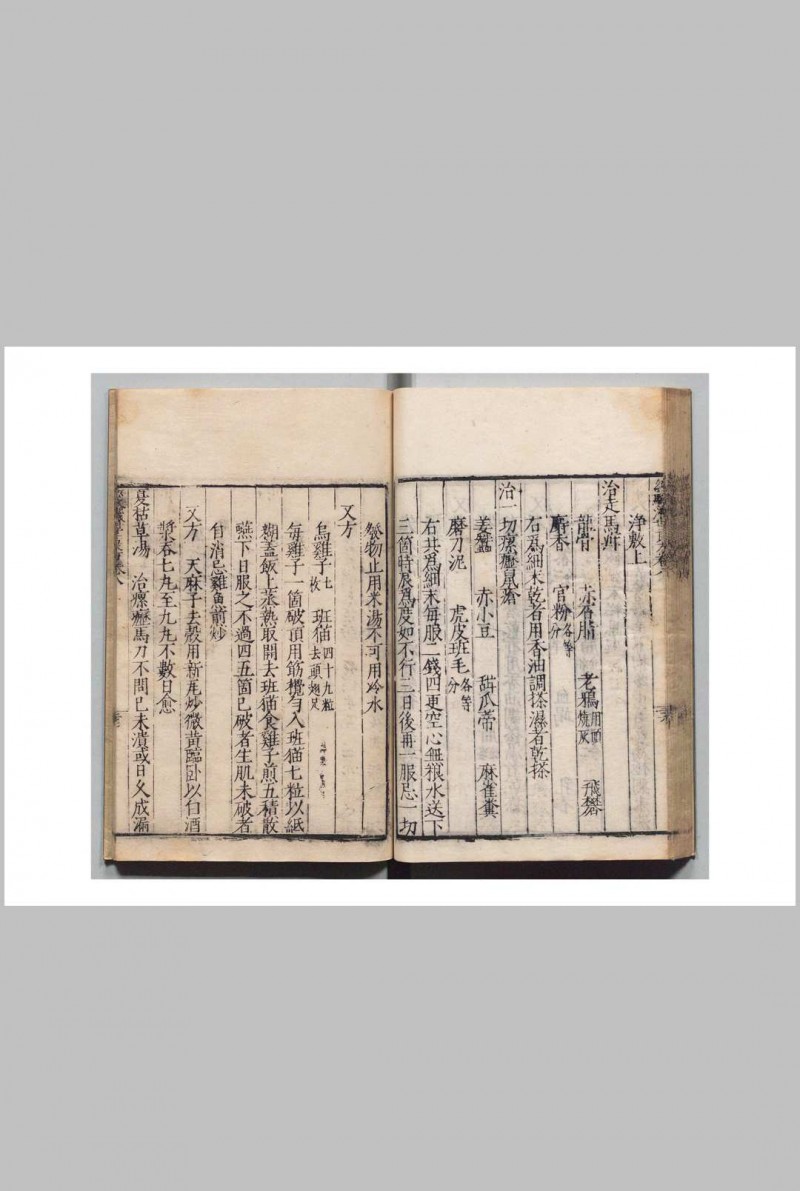 淨敷上
治走馬疳
龍骨 赤石脂 老鴉 用頭燒灰 飛礬
麝香 官粉 各等分
右為細末乾者用香油調搽濕者乾搽
治一切瘰癧鼠瘡
姜蠶 赤小豆 甜瓜蒂 麻雀糞
磨刀泥 虎皮班毛 各等分
右共為細末每服二錢四更空心無根水送下
三箇時辰為度如不行三日後再一服忌一切
發物止用米湯不可用冷水
又方
烏雞子 七枚 班猫 四十九粒去頭翅足
每雞子一箇破頂用筯攪勻入班猫七粒以紙
糊蓋飯上蒸熟取開去班猫食雞子煎五積散
嚥下日服之不過四五箇已破者生肌未破者
自消忌雞魚煎炒
又方 天麻子去殼用新瓦炒微黃臨卧以白酒
漿吞七丸至九丸不數日愈
夏枯草湯 治瘰癧馬刀不問已未潰或日久成漏